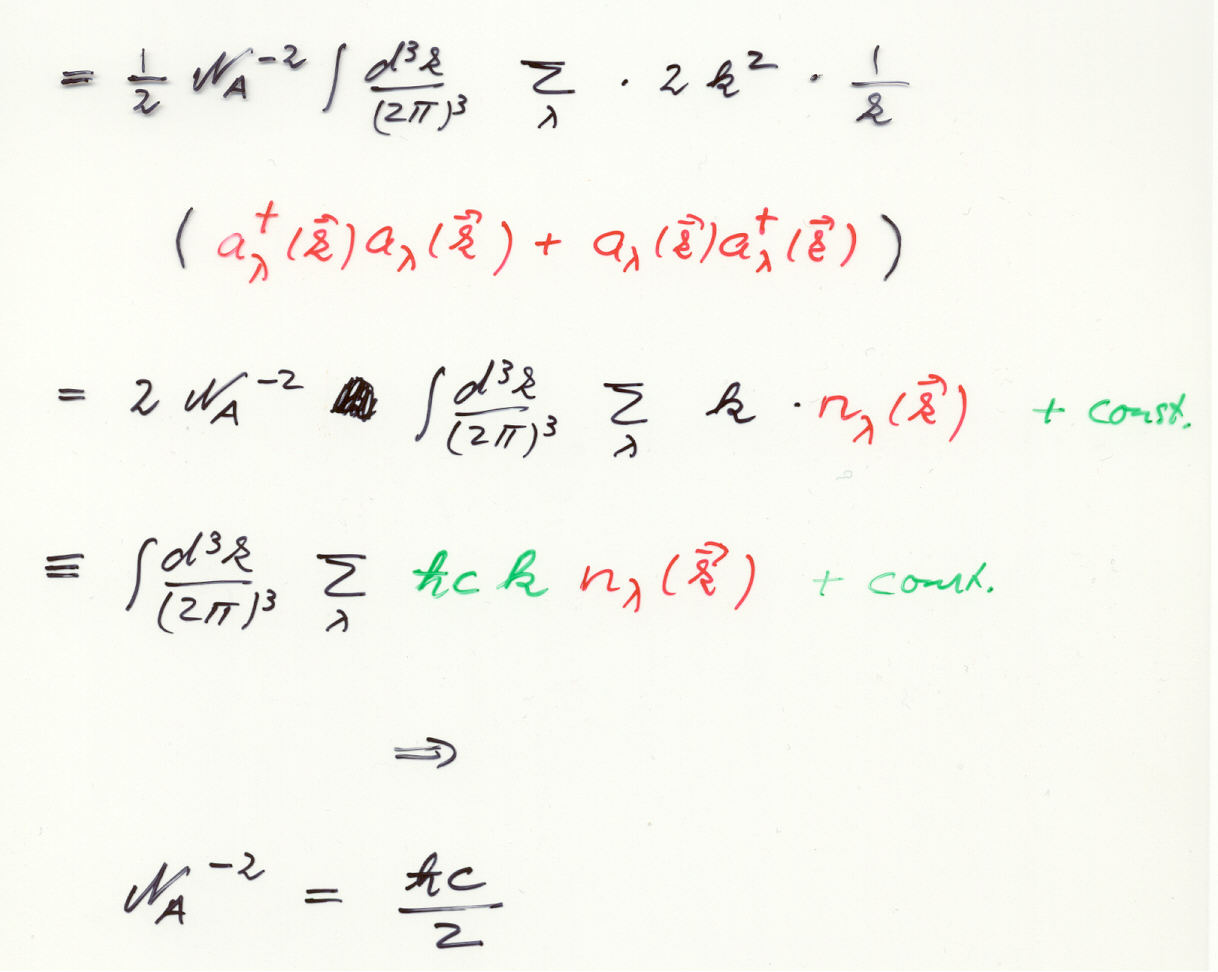 = 1/2 𝒩_A^{-2} ∫ d³k/(2π)³ Σ_λ · 2 k² · 1/k
( a_λ^†(k⃗) a_λ(k⃗) + a_λ(k⃗) a_λ^†(k⃗) )
= 2 𝒩_A^{-2} ∫ d³k/(2π)³ Σ_λ k · n_λ(k⃗) + const.
≡ ∫ d³k/(2π)³ Σ_λ ħc k n_λ(k⃗) + const.
⇒
𝒩_A^{-2} = ħc/2